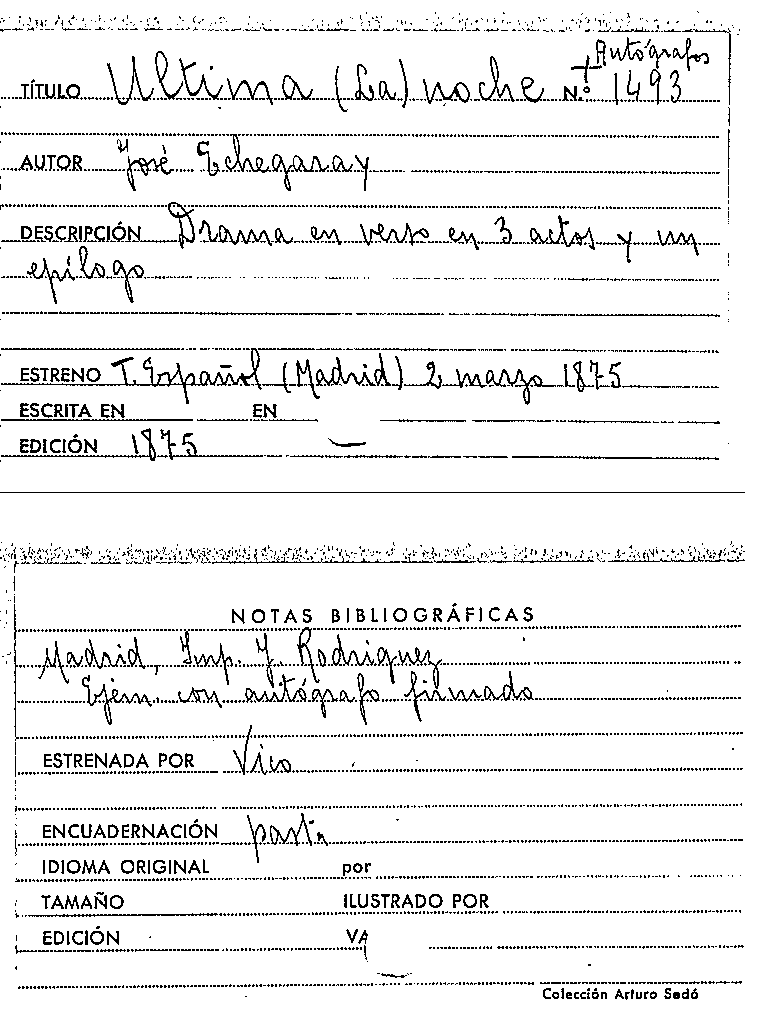 Autógrafos
TÍTULO Ultima (La) noche N.º 1493
AUTOR José Echegaray
DESCRIPCIÓN Drama en verso en 3 actos y un
epílogo
ESTRENO T. Español (Madrid) 2 marzo 1875
ESCRITA EN EN
EDICIÓN 1875
NOTAS BIBLIOGRÁFICAS
Madrid, Imp. J. Rodriguez
Ejem. con autógrafo firmado
ESTRENADA POR Vico
ENCUADERNACIÓN pasta
IDIOMA ORIGINAL por
TAMAÑO ILUSTRADO POR
EDICIÓN VA
Colección Arturo Sedó